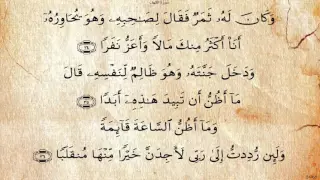 وَكَانَ لَهُۥ ثَمَرٌ فَقَالَ لِصَـٰحِبِهِۦ وَهُوَ يُحَاوِرُهُۥٓ
أَنَا۠ أَكْثَرُ مِنكَ مَالًا وَأَعَزُّ نَفَرًا ٣٤
وَدَخَلَ جَنَّتَهُۥ وَهُوَ ظَالِمٌ لِّنَفْسِهِۦ قَالَ
مَآ أَظُنُّ أَن تَبِيدَ هَـٰذِهِۦٓ أَبَدًا ٣٥
وَمَآ أَظُنُّ ٱلسَّاعَةَ قَآئِمَةً
وَلَئِن رُّدِدتُّ إِلَىٰ رَبِّى لَأَجِدَنَّ خَيْرًا مِّنْهَا مُنقَلَبًا ٣٦